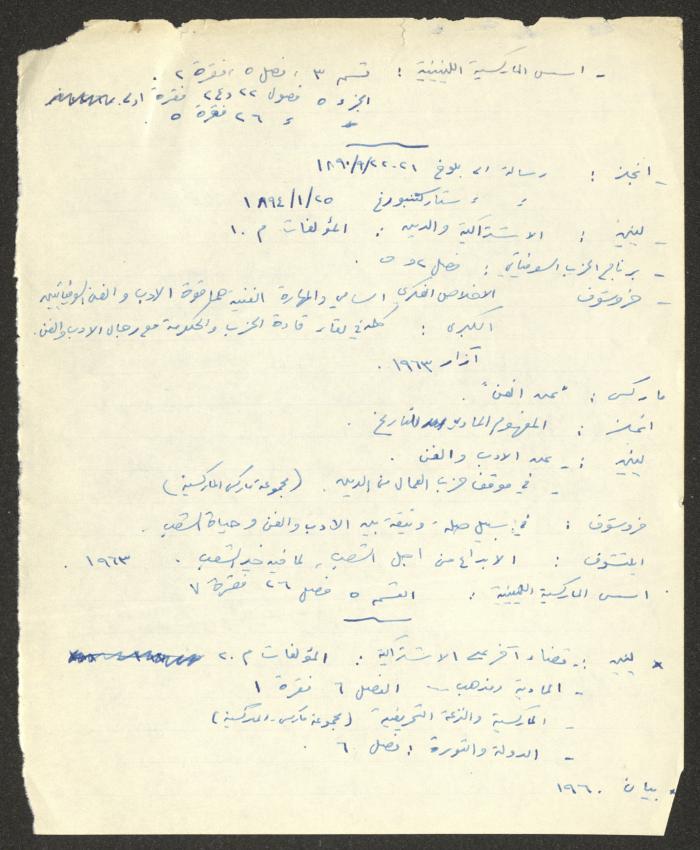 - اسس الماركسية اللينينية : قسم ٣ ، فصل ٥ ، فقرة ٢ .
الجزء ٥ فصول ٢٢ و ٢٤ فقرة اولى
٢٦ فقرة ٥
- انجلز : رسالة الى بلوخ ٢١-٢٢/٩/١٨٩٠
ستاركنبورغ ٢٥/١/١٨٩٤
- لينين : الاشتراكية والدين : المؤلفات م ١٠
- برنامج الحزب السوفياتي : فصل ٢
- خروستوف الاخلاص الفكري السامي والمهارة الفنية هما قوة الادب والفن السوفياتيين
الكبرى : كلمة في لقاء قادة الحزب والحكومة مع رجال الادب والفن .
آزار ١٩٦٣ .
ماركس : "عن الفن" .
انجلز : المفهوم المادي للتاريخ .
لينين : - عن الادب والفن .
- في موقف حزب العمال من الدين . (مجموعة ماركس الماركسية)
خروستوف : في سبيل صلة وثيقة بين الادب والفن وحياة الشعب .
ايلتشوف : الابداع من اجل الشعب ، لما فيه خير الشعب . ١٩٦٣ .
اسس الماركسية اللينينية : القسم ٥ فصل ٢٦ فقرة ٧
* لينين : - قضاء آخر على الاشتراكية : المؤلفات م ٢٠
- المادية ومذهب ... الفصل ٦ فقرة ١
- الماركسية والنزعة التحريفية (مجموعة ماركس - الماركسية)
- الدولة والثورة : فصل ٦ .
* بيان ١٩٦٠ .